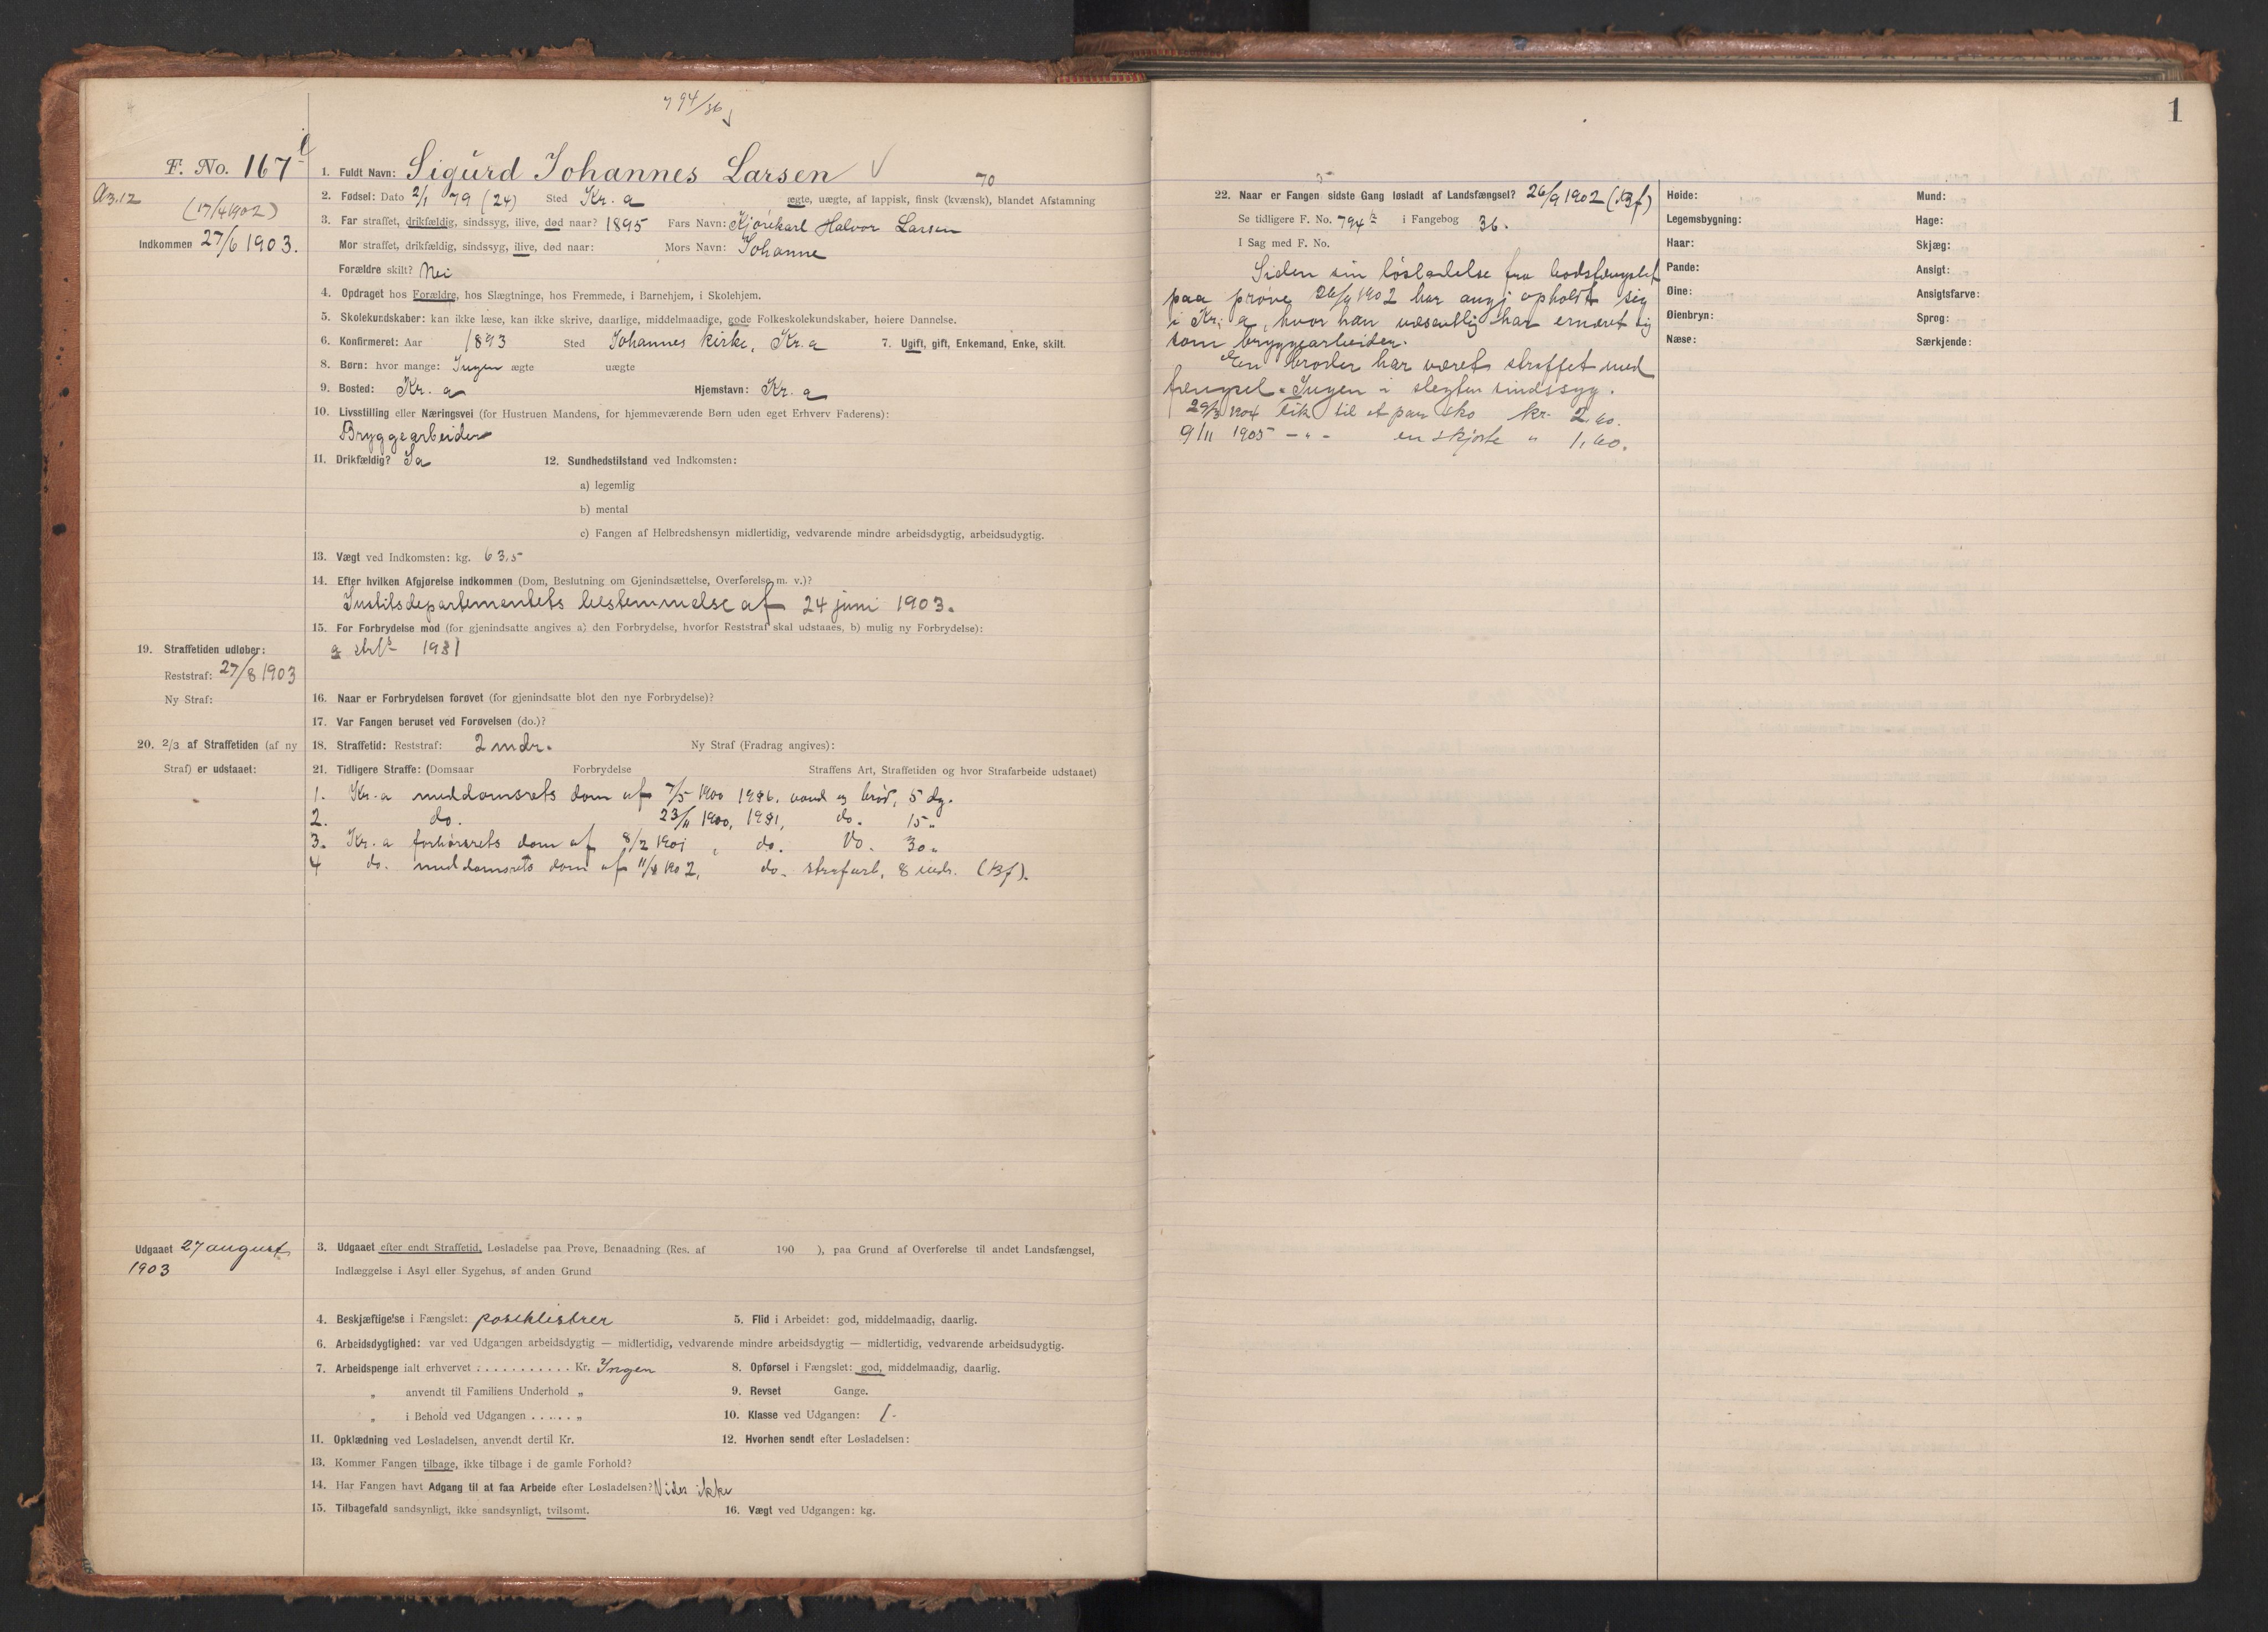 794/36
F. No. 167
1. Fuldt Navn: Sigurd Johannes Larsen
70
A3.12
(17/4 1902)
Indkommen 27/6 1903.
2. Fødsel: Dato 2/1 79 (24) Sted Kr.a ægte, uægte, af lappisk, finsk (kvænsk), blandet Afstamning
3. Far straffet, drikfældig, sindssyg, ilive, død naar? 1895 Fars Navn: Kjørekarl Halvor Larsen
Mor straffet, drikfældig, sindssyg, ilive, død naar: Mors Navn: Johanne
Forældre skilt? Nei
4. Opdraget hos Forældre, hos Slægtninge, hos Fremmede, i Barnehjem, i Skolehjem.
5. Skolekundskaber: kan ikke læse, kan ikke skrive, daarlige, middelmaadige, gode Folkeskolekundskaber, høiere Dannelse.
6. Konfirmeret: Aar 1893 Sted Johannes kirke, Kr.a 7. Ugift, gift, Enkemand, Enke, skilt.
8. Børn: hvor mange: Ingen ægte uægte
9. Bosted: Kr.a Hjemstavn: Kr.a
10. Livsstilling eller Næringsvei (for Hustruen Mandens, for hjemmeværende Børn uden eget Erhverv Faderens):
Bryggearbeider
11. Drikfældig? Ja 12. Sundhedstilstand ved Indkomsten:
a) legemlig
b) mental
c) Fangen af Helbredshensyn midlertidig, vedvarende mindre arbeidsdygtig, arbeidsudygtig.
13. Vægt ved Indkomsten: kg. 63,5
14. Efter hvilken Afgjørelse indkommen (Dom, Beslutning om Gjenindsættelse, Overførelse m. v.)?
Justitsdepartementets bestemmelse af 24 juni 1903.
15. For Forbrydelse mod (for gjenindsatte angives a) den Forbrydelse, hvorfor Reststraf skal udstaaes, b) mulig ny Forbrydelse):
19. Straffetiden udløber:
Reststraf: 27/8 1903
Ny Straf:
16. Naar er Forbrydelsen forøvet (for gjenindsatte blot den nye Forbrydelse)?
17. Var Fangen beruset ved Forøvelsen (do.)?
20. 2/3 af Straffetiden (af ny
Straf) er udstaaet:
18. Straffetid: Reststraf: 2 mdr. Ny Straf (Fradrag angives):
21. Tidligere Straffe: (Domsaar Forbrydelse Straffens Art, Straffetiden og hvor Strafarbeide udstaaet)
1. Kr.a meddomsrets dom af 7/5 1900 vand og brød, 5 dg.
2. do. 23/11 1900, do. 15 "
3. Kr.a forhørsrets dom af 8/2 1901 , do. do. 30 "
4 do. meddomsrets dom af 11/8 1902, do. strafarb, 8 mdr. (Bf).
Udgaaet 27 august
1903
3. Udgaaet efter endt Straffetid, Løsladelse paa Prøve, Benaadning (Res. af 190 ), paa Grund af Overførelse til andet Landsfængsel,
Indlæggelse i Asyl eller Sygehus, af anden Grund
4. Beskjæftigelse i Fængslet: poseklistrer 5. Flid i Arbeidet: god, middelmaadig, daarlig.
6. Arbeidsdygtighed: var ved Udgangen arbeidsdygtig — midlertidig, vedvarende mindre arbeidsdygtig — midlertidig, vedvarende arbeidsudygtig.
7. Arbeidspenge ialt erhvervet . . . . . . . . . . . Kr. Ingen 8. Opførsel i Fængslet: god, middelmaadig, daarlig.
„ anvendt til Familiens Underhold „ 9. Revset Gange.
„ i Behold ved Udgangen . . . . . „ 10. Klasse ved Udgangen: 1.
11. Opklædning ved Løsladelsen, anvendt dertil Kr. 12. Hvorhen sendt efter Løsladelsen:
13. Kommer Fangen tilbage, ikke tilbage i de gamle Forhold?
14. Har Fangen havt Adgang til at faa Arbeide efter Løsladelsen? Vides ikke
15. Tilbagefald sandsynligt, ikke sandsynligt, tvilsomt. 16. Vægt ved Udgangen: kg.
1
22. Naar er Fangen sidste Gang løsladt af Landsfængsel? 26/9 1902 (Bf)
Se tidligere F. No. 794 i Fangebog 36.
I Sag med F. No.
Siden sin løsladelse fra bodsfængslet
paa prøve 26/9 1902 har angj opholdt sig
i Kr.a, hvor han væsentlig har ernæret sig
som bryggearbeider.
En broder har været straffet med
fængsel. Ingen i slegten sindssyg.
29/3 1904 fik til et par sko kr. 2,60.
9/11 1905 - " - en skjorte " 1,60.
Høide: Mund:
Legemsbygning: Hage:
Haar: Skjæg:
Pande: Ansigt:
Øine: Ansigtsfarve:
Øienbryn: Sprog:
Næse: Særkjende: